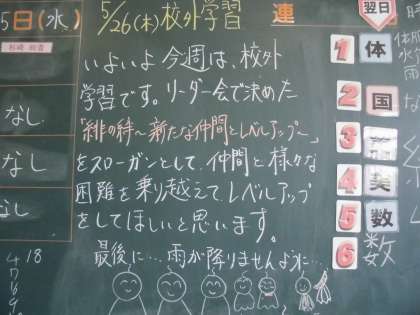 5日(水)
なし
なし
なし
18
5/26(木)校外学習
連
いよいよ今週は、校外
学習です。リーダー会で決めた
「緋の絆〜新たな仲間とレベルアップ〜」
をスローガンとして、仲間と様々な
困難を乗り越えて、レベルアップ
をしてほしいと思います。
最後に…雨が降りませんように…
翌日
1 体
2 国
3
4 美
5 数
6 数